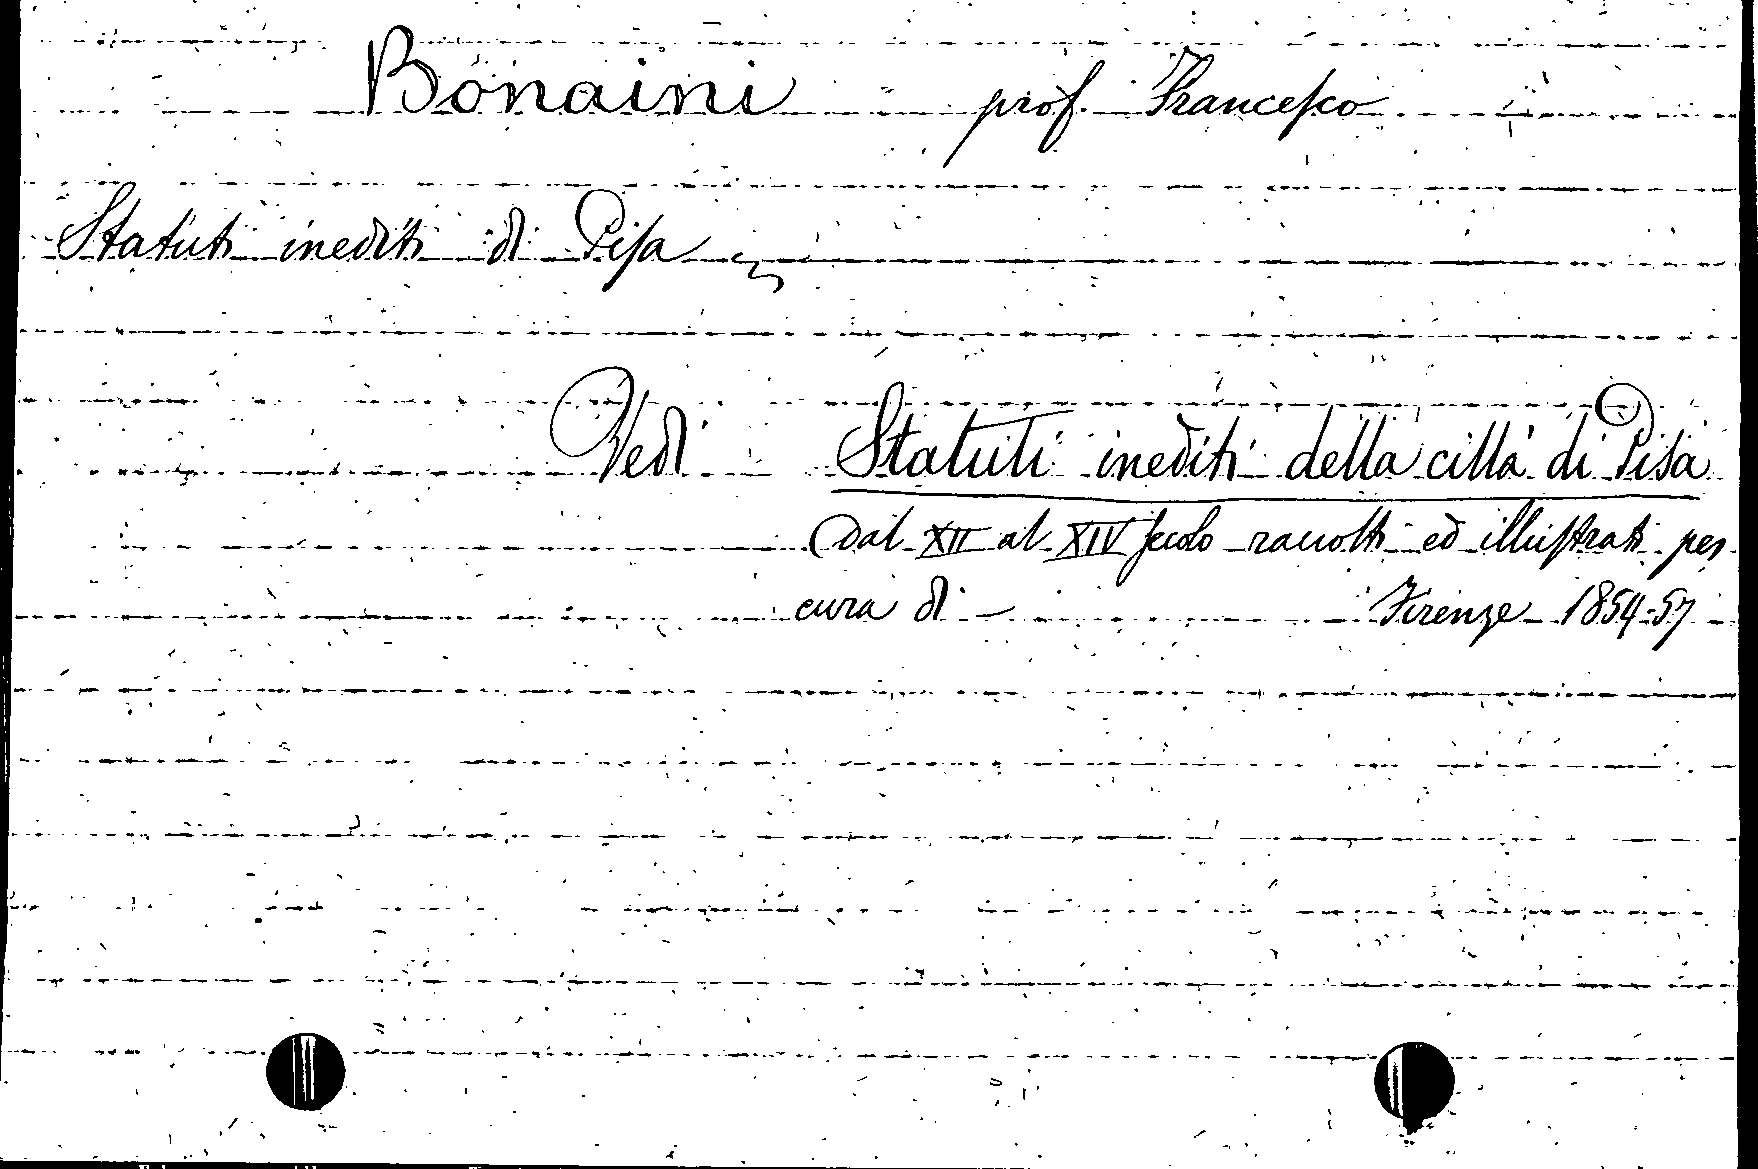 Bonaini prof. Francesco
Statuti inediti di Pisa
Vedi Statuti inediti della città di Pisa
dal XII al XIV secolo raccolti ed illustrati per
cura di — Firenze 1854-57